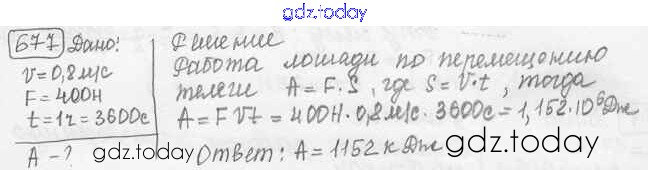 gdz.today
677 Дано:
v = 0,8 м/с
F = 400Н
t = 1ч = 3600с
A - ?
Решение
Работа лошади по перемещению
телеги A = F · S, где S = V · t, тогда
A = F V t = 400Н · 0,8 м/с · 3600с = 1,152 · 10⁶ Дж
Ответ: A = 1152 кДж
gdz.today
gdz.today